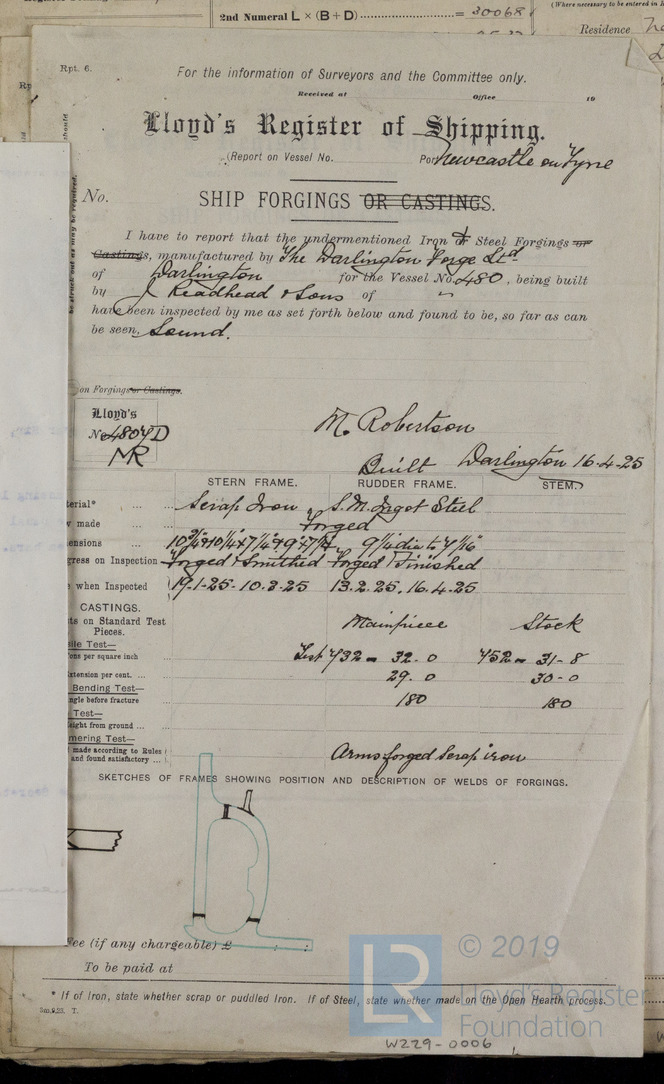 2nd Numeral L × (B + D) = 30068
(Where necessary to be entered in
Residence
Rpt. 6.
For the information of Surveyors and the Committee only.
Received at Office 19
Lloyd's Register of Shipping.
(Report on Vessel No. Port Newcastle on Tyne
No.
SHIP FORGINGS OR CASTINGS.
I have to report that the undermentioned Iron & Steel Forgings or
Castings, manufactured by The Darlington Forge Ltd
of Darlington for the Vessel No. 480, being built
by J Readhead & Sons of "
have been inspected by me as set forth below and found to be, so far as can
be seen, Sound.
on Forgings or Castings.
Lloyd's
No 4804 D
MR
M. Robertson
Built Darlington 16.4.25
STERN FRAME. RUDDER FRAME. STEM.
Scrap Iron S.M. Ingot Steel
made Forged
Forged & Smithed Forged & Finished
when Inspected 19.1.25 - 10.3.25 13.2.25, 16.4.25
CASTINGS.
on Standard Test Mainpiece Stock
Pieces.
Test—
per square inch Test 432 = 32.0 452 = 31-8
per cent. 29.0 30-0
Bending Test—
before fracture 180 180
Test—
from ground
made according to Rules
and found satisfactory Arms forged Scrap iron
SKETCHES OF FRAMES SHOWING POSITION AND DESCRIPTION OF WELDS OF FORGINGS.
Fee (if any chargeable) £ : :
To be paid at
* If of Iron, state whether scrap or puddled Iron. If of Steel, state whether made on the Open Hearth process.
© 2019
LR
Lloyd's Register
Foundation
W229-0006